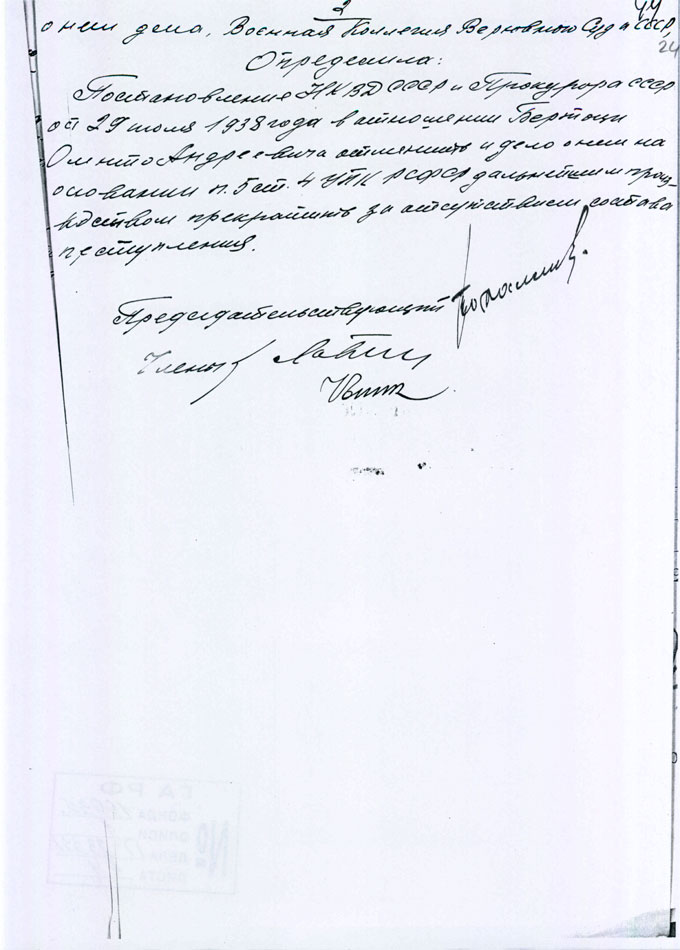 2
44
24
о нем дела, Военная Коллегия Верховного Суда СССР,
Определила:
Постановление НКВД СССР и Прокурора СССР
от 29 июля 1938 года в отношении Бертоци
Олинто Андреевича отменить и дело о нем на
основании п. 5 ст. 4 УПК РСФСР дальнейшим произ-
водством прекратить за отсутствием состава
преступления.
Председательствующий
Члены
ГАРФ
ФОНДА
ОПИСИ
ДЕЛА
ЛИСТА
№